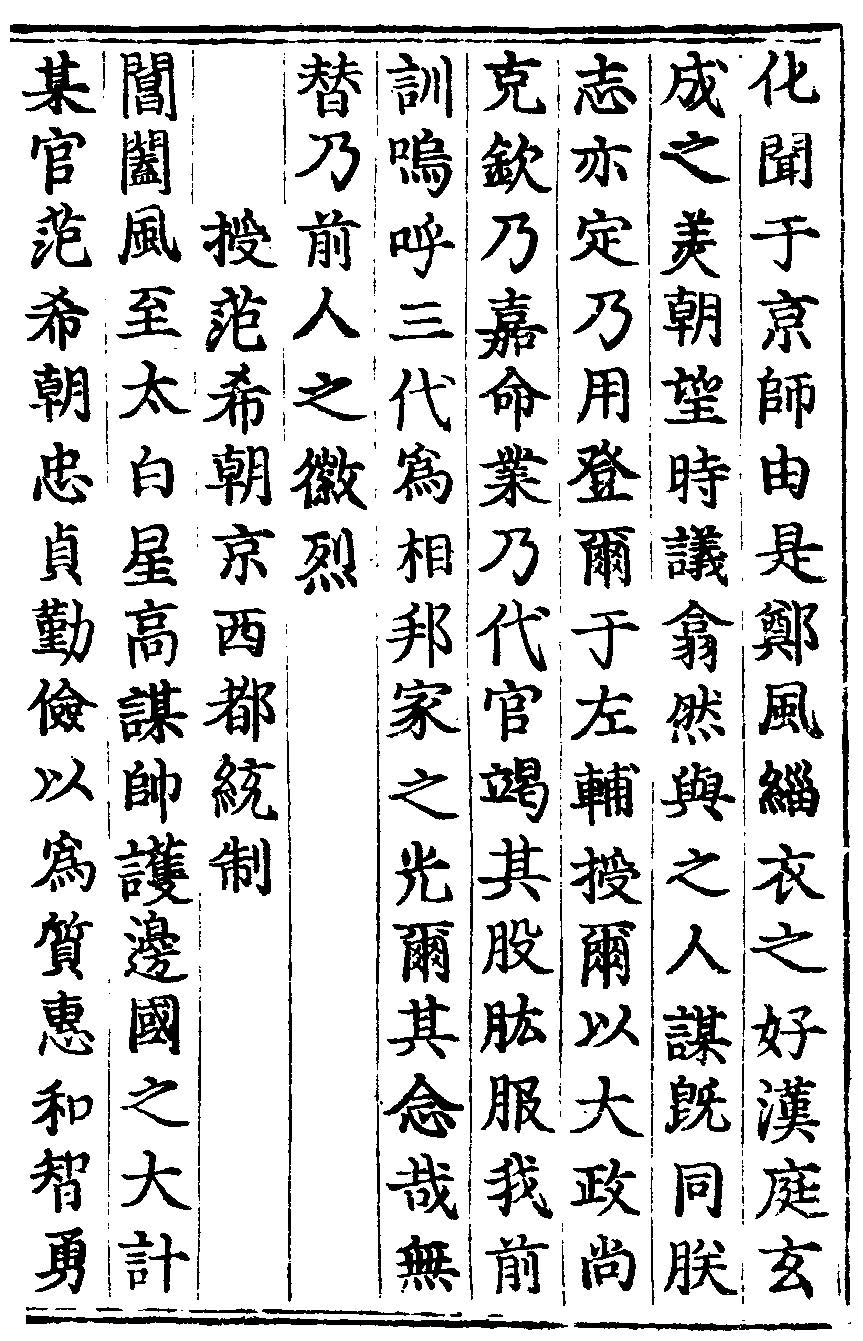 化聞于京師由是鄭風緇衣之好漢庭玄
成之美朝望時議翕然與之人謀旣同朕
志亦定乃用登爾于左輔授爾以大政尚
克欽乃嘉命業乃代官竭其股肱服我前
訓嗚呼三代爲相邦家之光爾其念哉無
替乃前人之徽烈
授范希朝京西都統制
閶闔風至太白星高謀帥護邊國之大計
某官范希朝忠貞勤儉以爲質惠和智勇